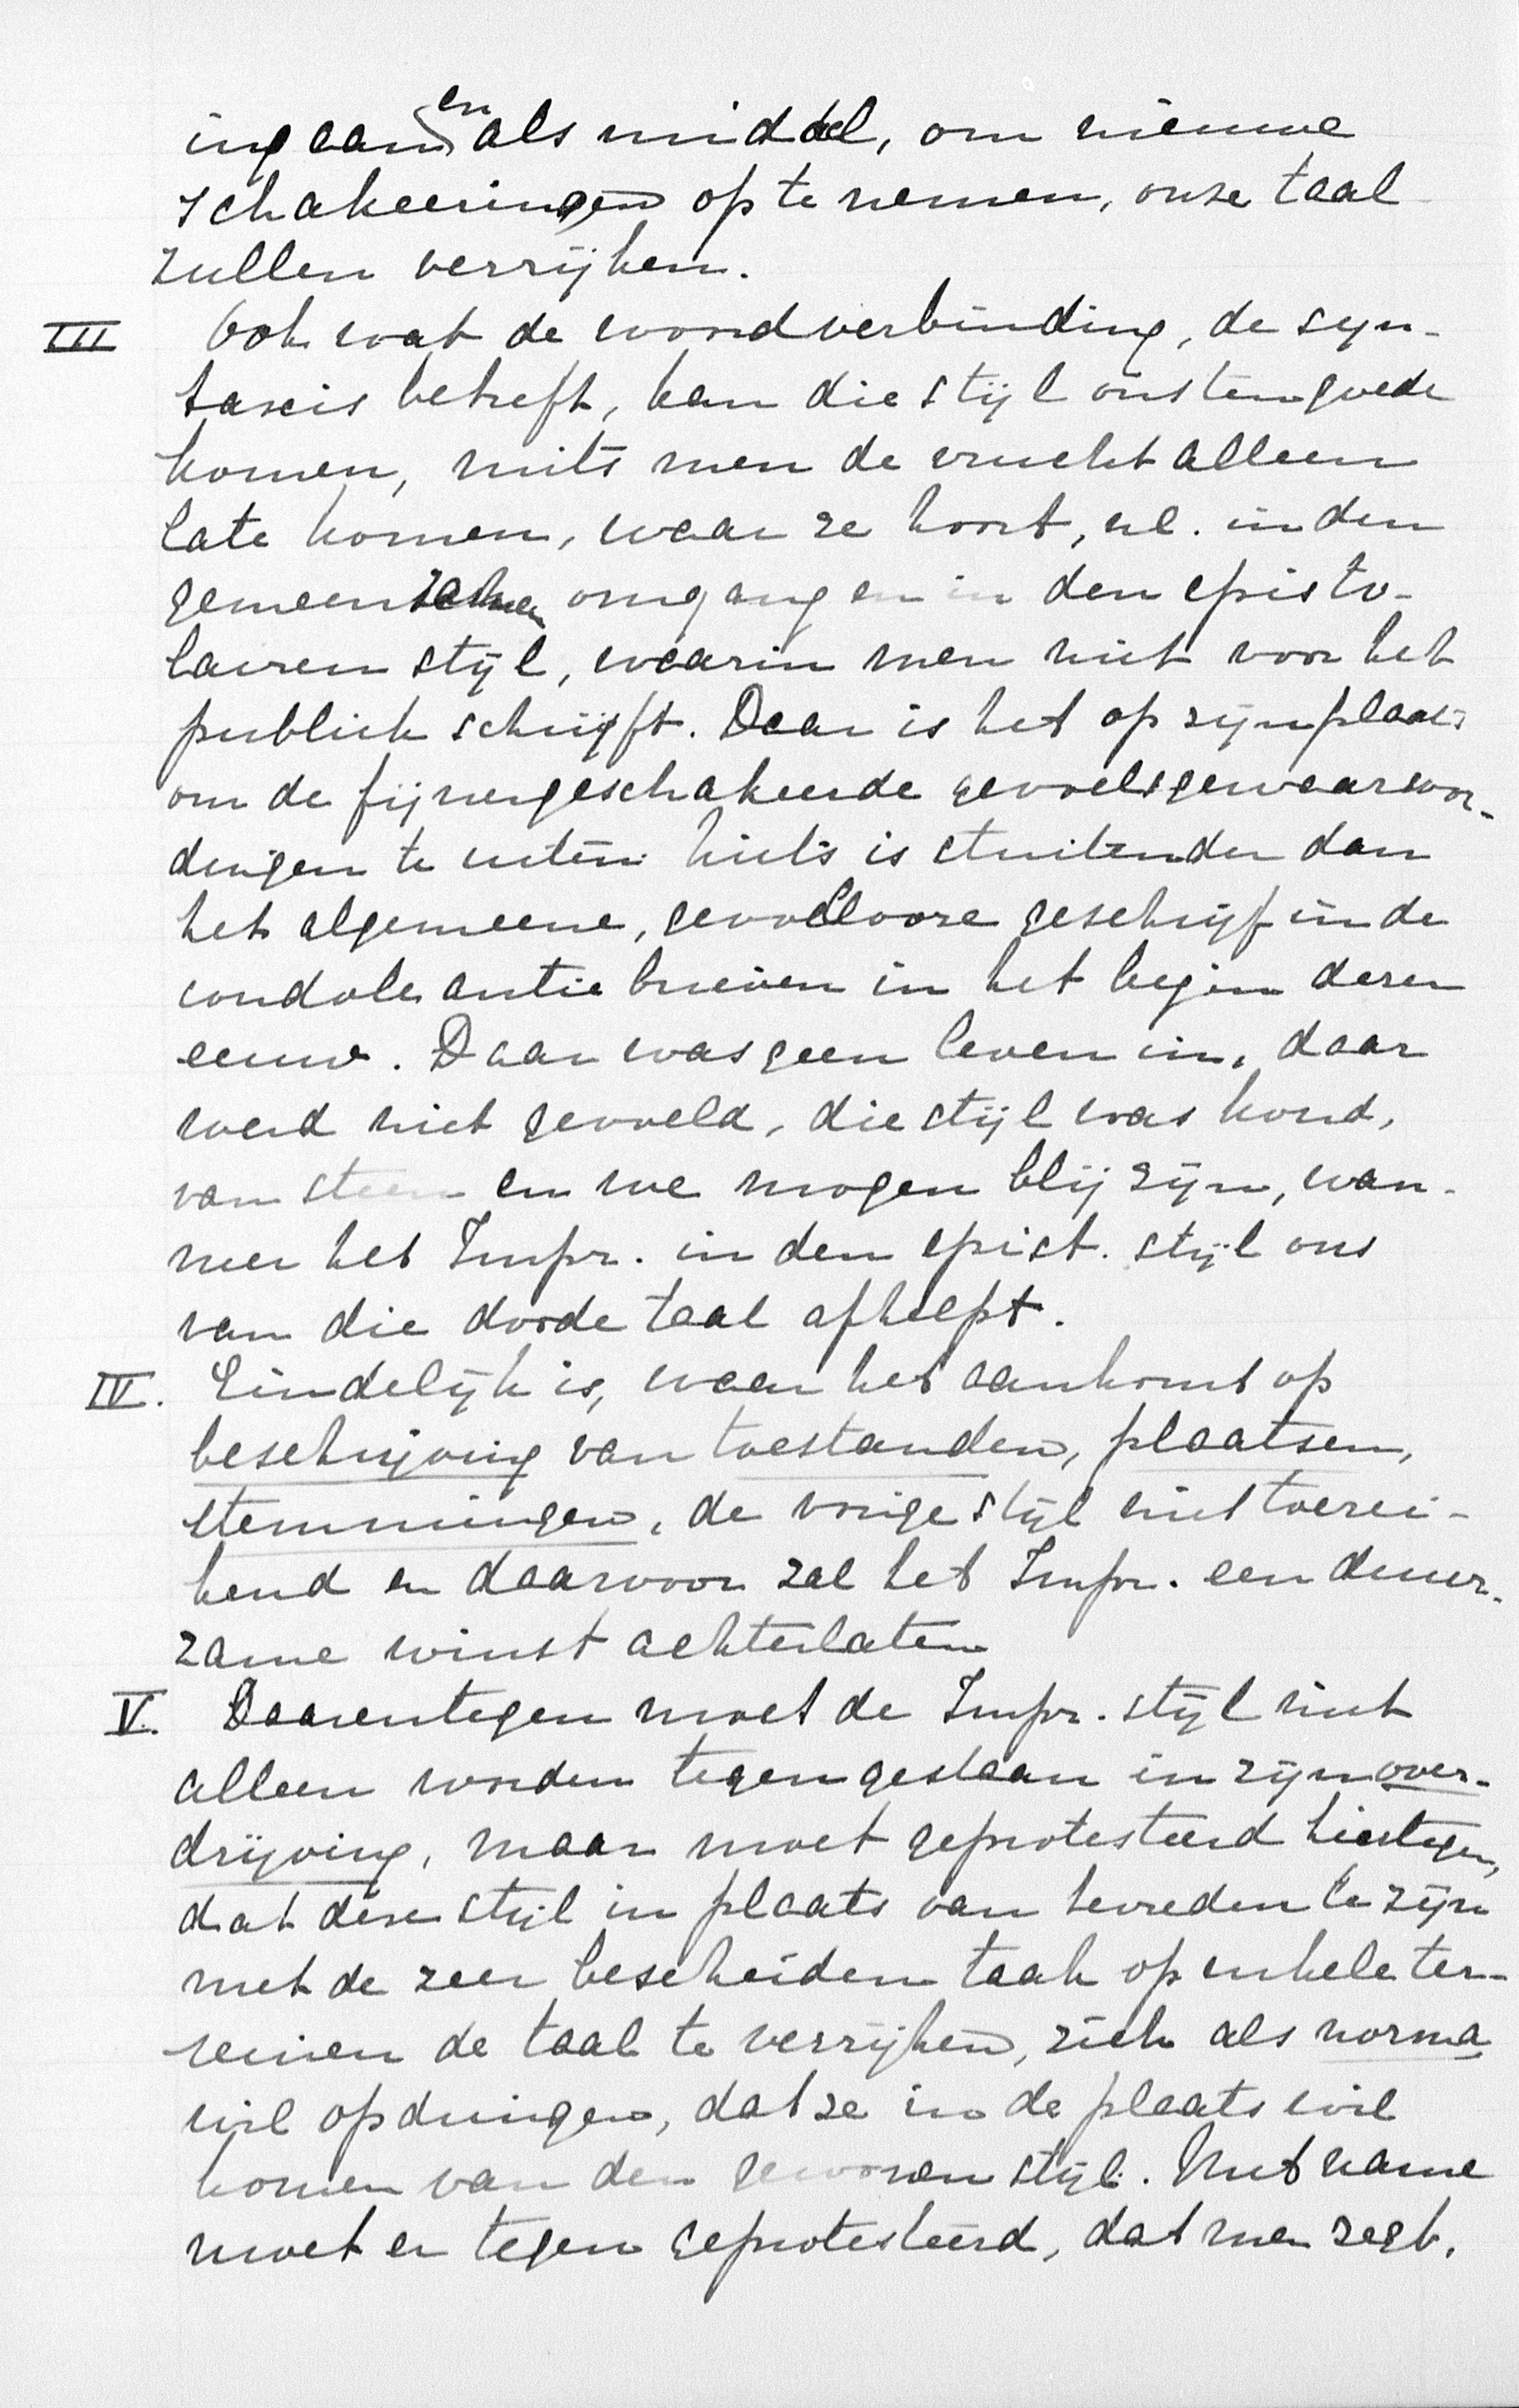 ingaan en als middel, om nieuwe
schakeeringen op te nemen, onze taal
zullen verrijken.
III Ook wat de woordverbinding, de syn-
taxis betreft, kan die stijl ons ten goede
komen, mits men de vrucht alleen
late komen, waar ze hoort, nl. in den
gemeenzamen omgang en in den episto-
lairen stijl, waarin men niet voor het
publiek schrijft. Daar is het op zijn plaats
om de fijnergeschakeerde gevoelsgewaarwor-
dingen te uiten. Niets is stuitender dan
het algemeene, gevoelloose geschrijf in de
condoleantie brieven in het begin dezer
eeuw. Daar was geen leven in, daar
werd niet gevoeld, die stijl was koud,
van steen en we mogen blij zijn, wan-
neer het Impr. in den epist. stijl ons
van die doode taal afhelpt.
IV. Eindelijk is, waar het aankomt op
beschrijving van toestanden, plaatsen,
stemmingen, de vorige stijl niet toerei-
kend en daarvoor zal het Impr. een duur-
zame winst achterlaten
V. Daarentegen moet de Impr. stijl niet
alleen worden tegengestaan in zijn over-
drijving, maar moet geprotesteerd hiertegen,
dat deze stijl in plaats van tevreden te zijn
met de zeer bescheiden taak op enkele ter-
reinen de taal te verrijken, zich als norma
wil opdringen, dat ze in de plaats wil
komen van den gewonen stijl. Met name
moet er tegen geprotesteerd, dat men zegt,